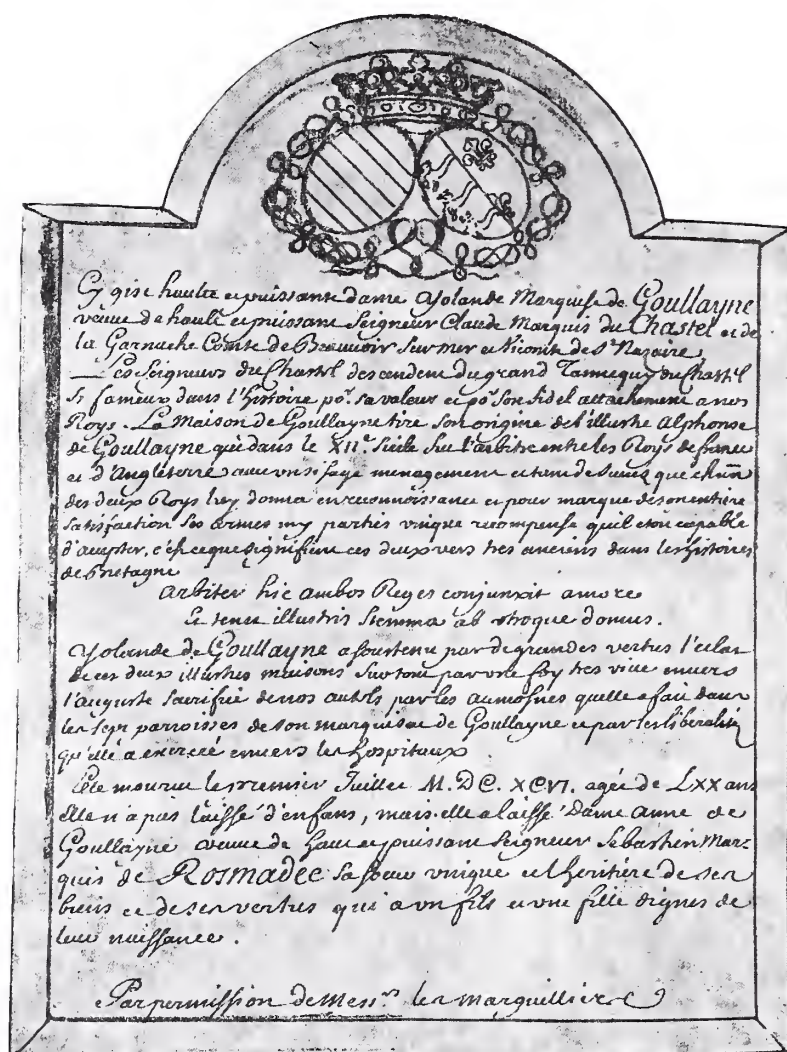 Cy gist haulte et puissante dame Yolande Marquise de Goullayne
veuve de hault et puissant Seigneur Claude Marquis du Chastel et de
la Garnache Comte de Beauvoir sur mer et Vicomte de St Nazaire,
Les Seigneurs du Chastel descendent du grand Tanneguy du Chastel
si fameux dans l'histoire por. sa valeur et por. son fidel attachement a nos
Roys. La Maison de Goullayne tire son origine de l'illustre Alphonse
de Goullayne qui dans le XIIe. siecle fut l'arbitre entre les Roys de france
et d'Angleterre avec un si sage menagement et tant de succez que chun
des deux Roys luy donna en reconnoissance et pour marque de son entiere
satisfaction ses armes my parties unique recompense qu'il etoit capable
d'accepter, c'est ce que signifient ces deux vers tres anciens dans les histoires
de Bretagne
Arbiter hic ambos Reges conjunxit amore
Et tenet illustris stemma ab utroque domus.
Yolande de Goullayne a soustenu par de grandes vertus l'eclat
de ces deux illustres maisons sur tout par une foy tres vive envers
l'auguste sacrifice de nos autels par les aumosnes quelle a fait dans
les sept parroisses de son marquisat de Goullayne et par les liberalitez
qu'elle a exercée envers les hospitaux
Elle mourut le premier Juillet M. DC. XCVI. agée de LXX ans
Elle n'a pas laissé d'enfans, mais elle a laissé Dame Anne de
Goullayne veuve de haut et puissant Seigneur Sebastien Mar-
quis de Rosmadec sa soeur unique et heritiere de ses
biens et de ses vertus qui a un fils et une fille dignes de
leur naissance.
Par permission de Messrs les marguilliers